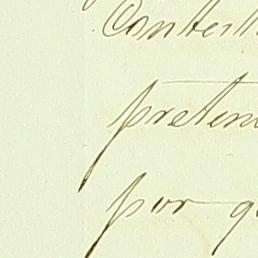 Contesta
preten
por q